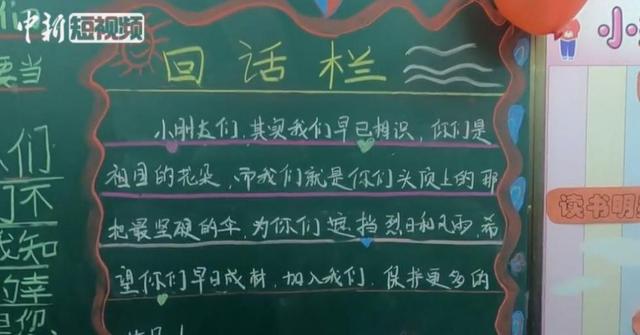 中新短视频
回话栏
小朋友们，其实我们早已相识，你们是
祖国的花朵，而我们就是你们头顶上的那
把最坚硬的伞，为你们遮挡烈日和风雨，希
望你们早日成材，加入我们，保护更多的
要当
们
不
我知
的幸
小
读书明